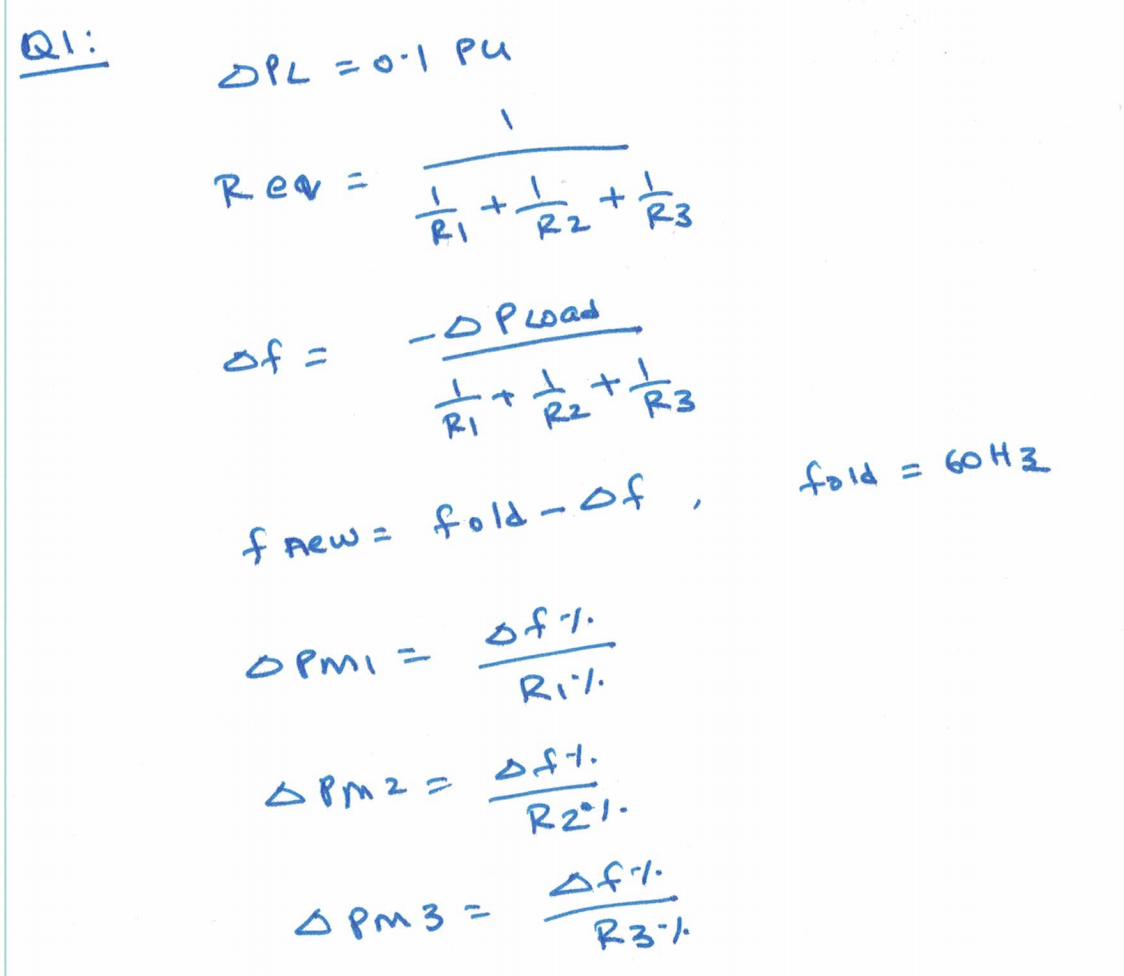 Q1:
ΔPL = 0.1 PU
Req = 1 / (1/R1 + 1/R2 + 1/R3)
Δf = -ΔPLoad / (1/R1 + 1/R2 + 1/R3)
fnew = fold - Δf , fold = 60Hz
ΔPm1 = Δf% / R1%
ΔPm2 = Δf% / R2%
ΔPm3 = Δf% / R3%